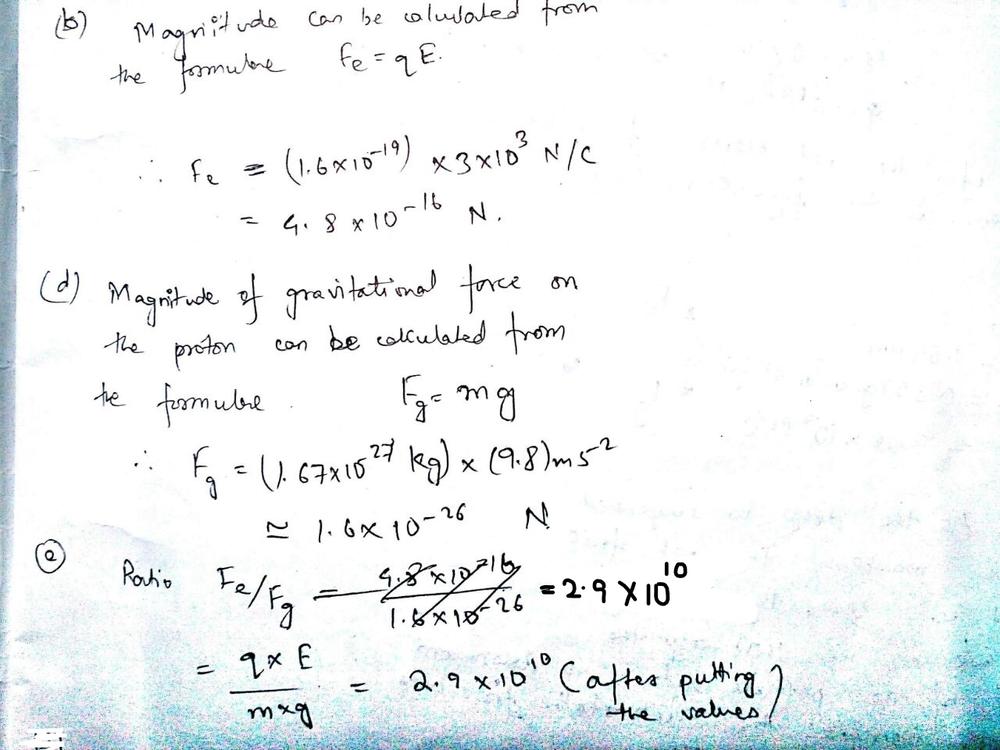 (b) Magnitude can be calculated from
the formulae Fe = qE.
∴ Fe = (1.6×10⁻¹⁹) × 3×10³ N/C
= 4.8 × 10⁻¹⁶ N.
(d) Magnitude of gravitational force on
the proton can be calculated from
the formulae. Fg = mg
∴ Fg = (1.67×10²⁷ kg) × (9.8)ms⁻²
≃ 1.6 × 10⁻²⁶ N
(e) Ratio Fe/Fg = 4.8×10⁻¹⁶ / 1.6×10⁻²⁶ = 2.9 X 10¹⁰
= q×E / m×g = 2.9 × 10¹⁰ (after putting
the values)